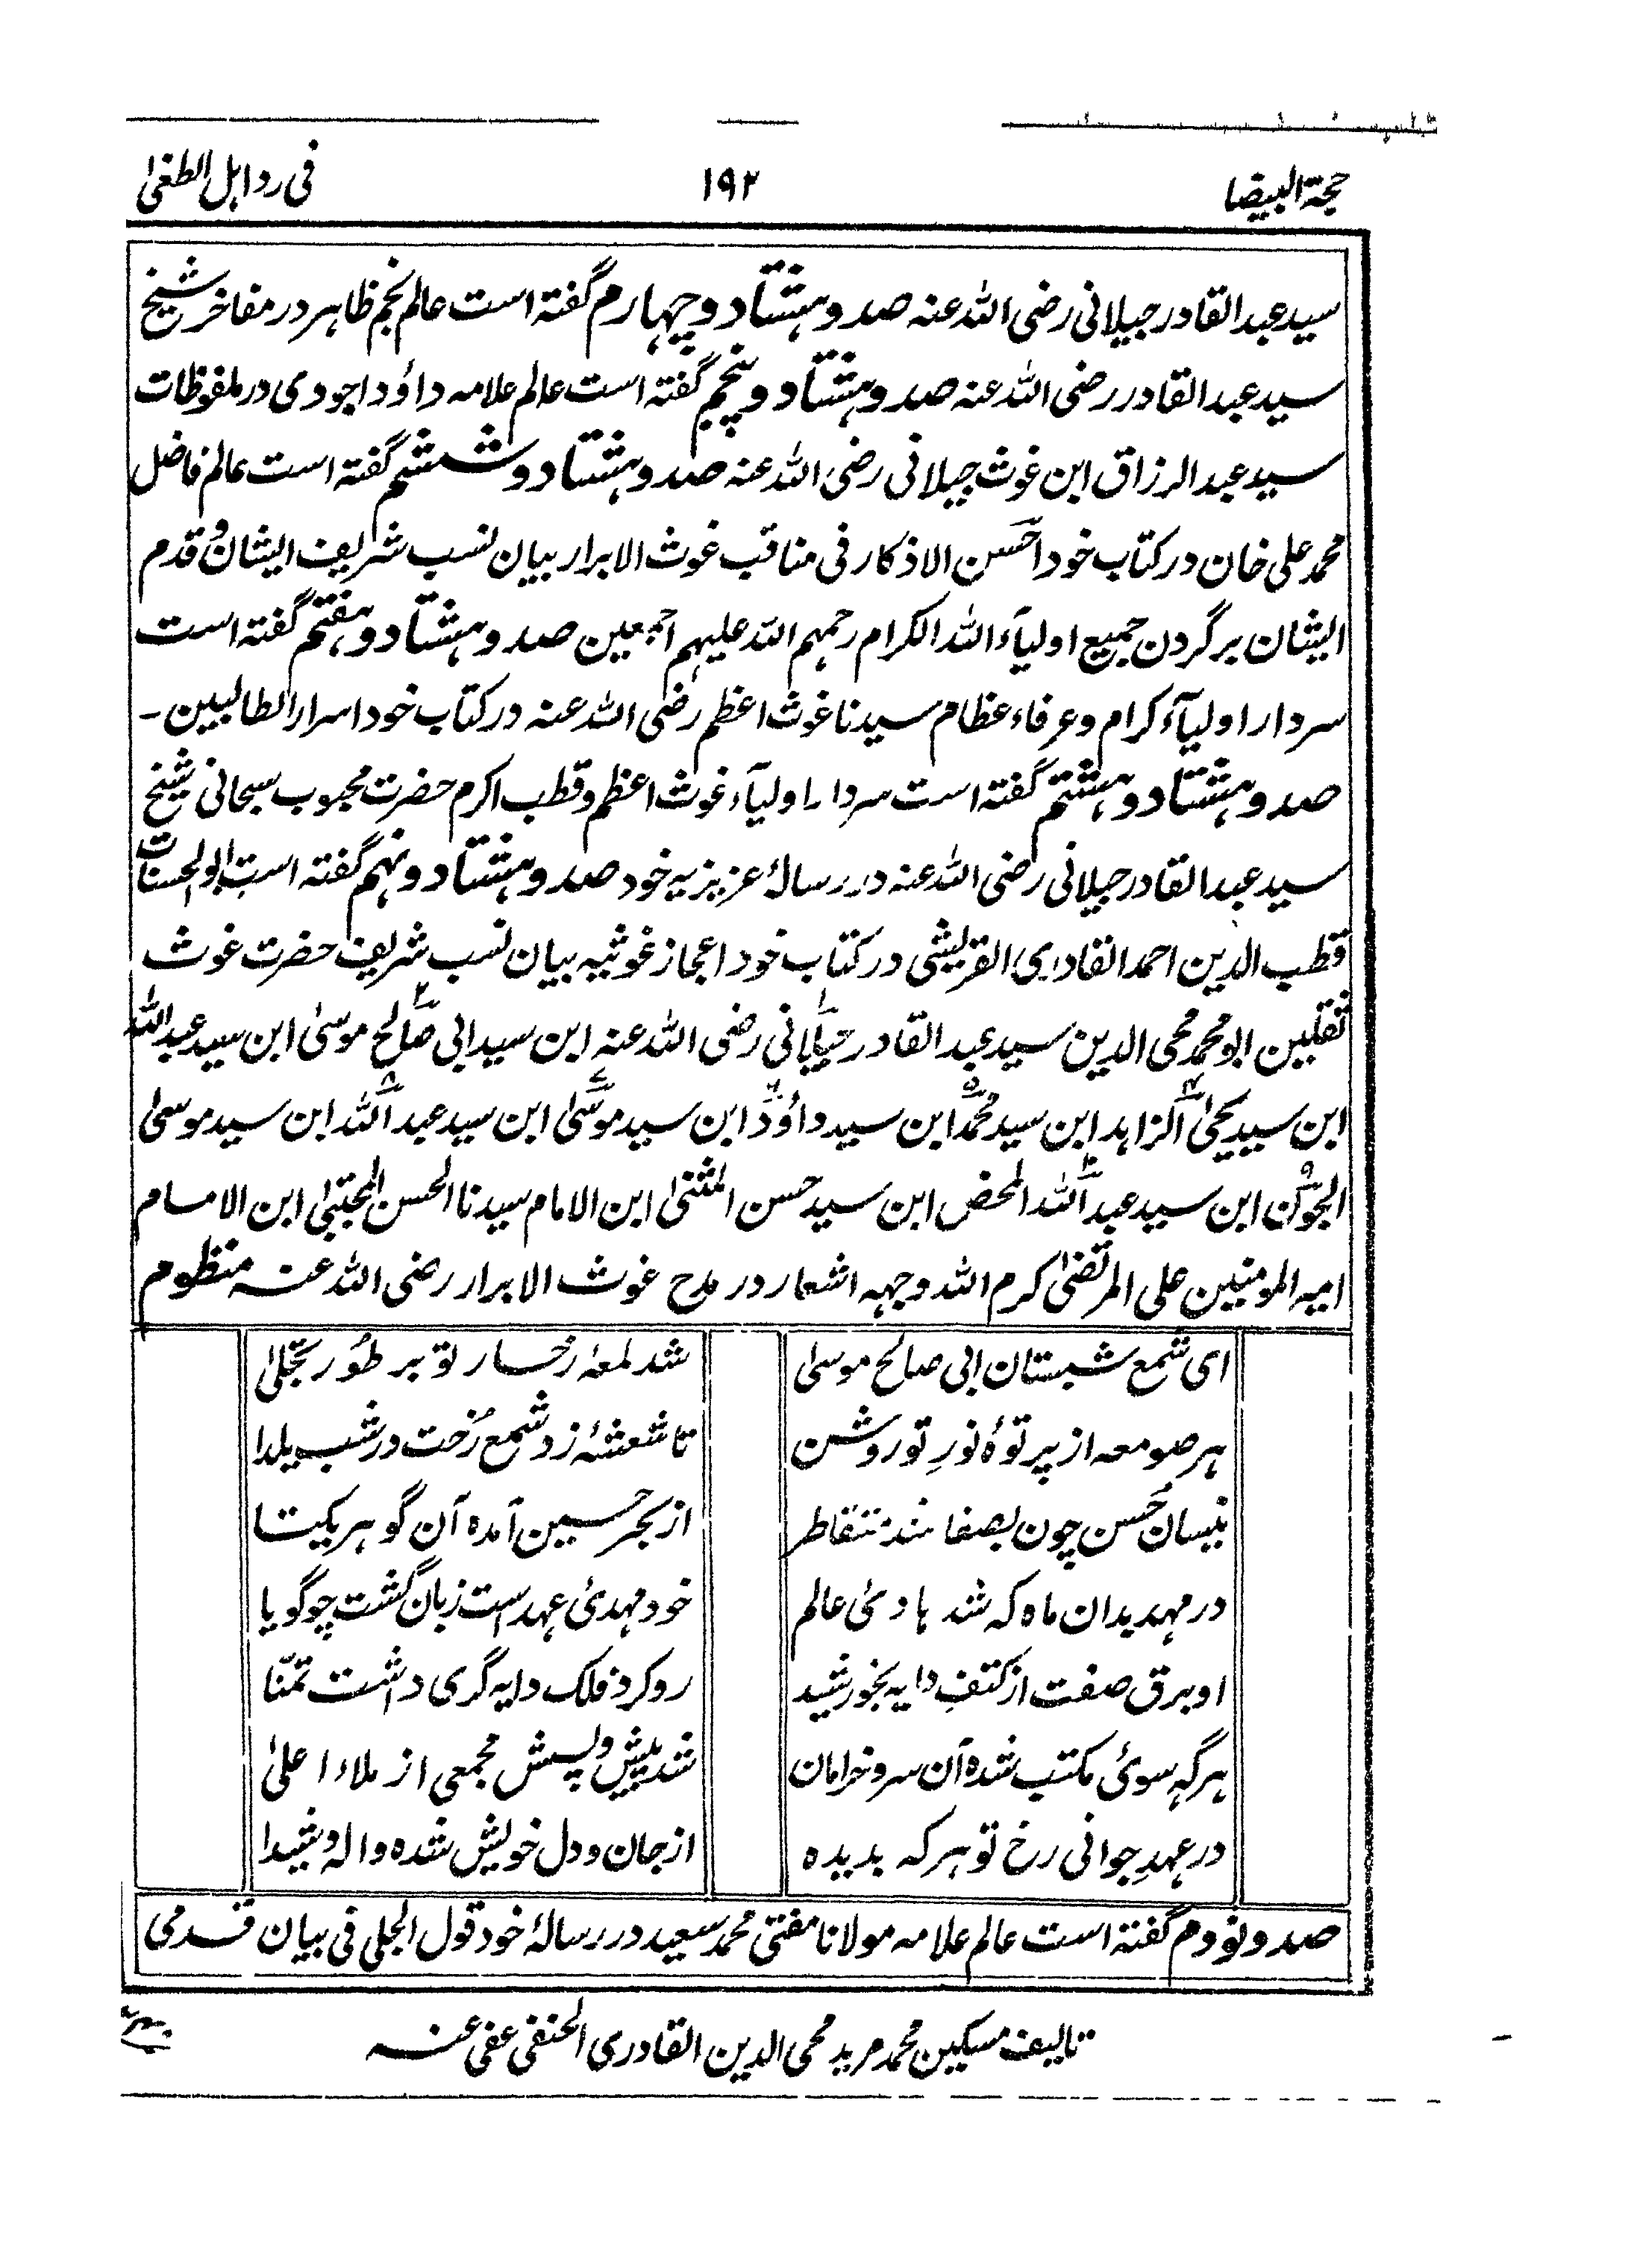 حجة البیضا ۱۹۲ فی رد اہل الطغیٰ
سید عبد القادر جیلانی رضی اللہ عنہ صد و ہشتاد و چہارم گفتہ است عالم نجم ظاہر در مفاخر شیخ
سید عبد القادر رضی اللہ عنہ صد و ہشتاد و پنجم گفتہ است عالم علامہ داؤد اجودی در ملفوظات
سید عبد الرزاق ابن غوث جیلانی رضی اللہ عنہ صد و ہشتاد و ششم گفتہ است عالم فاضل
محمد علی خان در کتاب خود احسن الاذکار فی مناقب غوث الابرار بیان نسب شریف ایشان و قدم
ایشان بر گردن جمیع اولیآء اللہ الکرام رحمہم اللہ علیہم اجمعین صد و ہشتاد و ہفتم گفتہ است
سردار اولیآء کرام و عرفاء عظام سیدنا غوث اعظم رضی اللہ عنہ در کتاب خود اسرار الطالبین ـ
صد و ہشتاد و ہشتم گفتہ است سردار اولیآء غوث اعظم و قطب اکرم حضرت محبوب سبحانی شیخ
سید عبد القادر جیلانی رضی اللہ عنہ در رسالۂ عزیزیہ خود صد و ہشتاد و نہم گفتہ است ابو الحسنات
قطب الدین احمد القادری القریشی در کتاب خود اعجاز غوثیہ بیان نسب شریف حضرت غوث
ثقلین ابو محمد محی الدین سید عبد القادر جیلانی رضی اللہ عنہ ابن سید ابی صالح موسیٰ ابن سید عبد اللہ
ابن سید یحیٰ الزاہد ابن سید محمد ابن سید داؤد ابن سید موسیٰ ابن سید عبد اللہ ابن سید موسیٰ
الجون ابن سید عبد اللہ المحض ابن سید حسن المثنیٰ ابن الامام سیدنا الحسن المجتبیٰ ابن الامام
امیہ المومنین علی المرتضیٰ کرم اللہ وجہہ اشعار در مدح غوث الابرار رضی اللہ عنہ منظوم
ای شمع شبستان ابی صالح موسیٰ شد لمعہ رخسار تو بر طُور تجلیٰ
ہر صومعہ از پرتوۂ نورِ تو روشن تا شعشۂ زد شمع رُخت در شب یلدا
نیسان حُسن چون بصفا شد متقاطر از بحر حسین آمدہ آن گوہر یکتا
در مہد بدان ماہ کہ شد ہادیٔ عالم خود مہدیٔ عہد است زبان گشت چو گویا
او برق صفت از کتفِ دایہ بخورشید رو کرد فلک دایہ گری داشت تمنّا
ہر گہ سوئ مکتب شدہ آن سرو خرامان شد پیش و پسش مجمعی از ملاء اعلیٰ
در عہدِ جوانی رخ تو ہر کہ بدیدہ از جان و دل خویش شدہ والہ و شیدا
صد و نودم گفتہ است عالم علامہ مولانا مفتی محمد سعید در رسالۂ خود قول الجلی فی بیان قدمی
تالیف مسکین محمد مرید محی الدین القادری الحنفی عفی عنہ